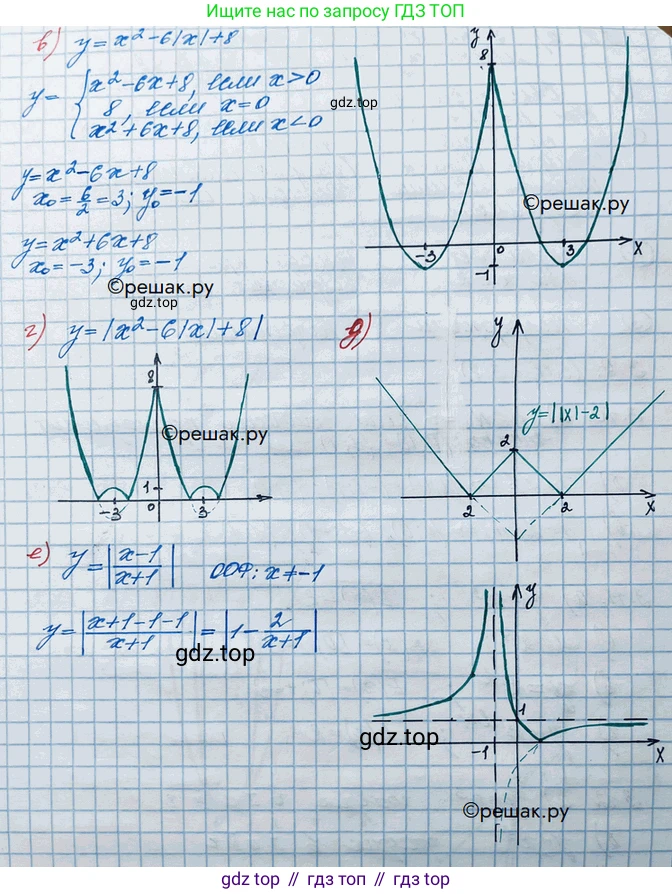 Ищите нас по запросу ГДЗ ТОП
в) y = x² - 6|x| + 8
y = { x² - 6x + 8, если x > 0
8, если x = 0
x² + 6x + 8, если x < 0
gdz.top
y = x² - 6x + 8
x₀ = 6/2 = 3; y₀ = -1
y = x² + 6x + 8
x₀ = -3; y₀ = -1
©решак.ру
gdz.top
y
8
©решак.ру
-3 0 3 x
-1
г) y = |x² - 6|x| + 8|
8
©решак.ру
1
-3 0 3
д)
y
y = ||x| - 2|
2
2 2 x
е) y = |(x-1)/(x+1)| ООФ: x ≠ -1
y = |(x+1-1-1)/(x+1)| = |1 - 2/(x+1)|
gdz.top
y
1
gdz.top
-1 x
©решак.ру
gdz.top // гдз.топ // gdz.top